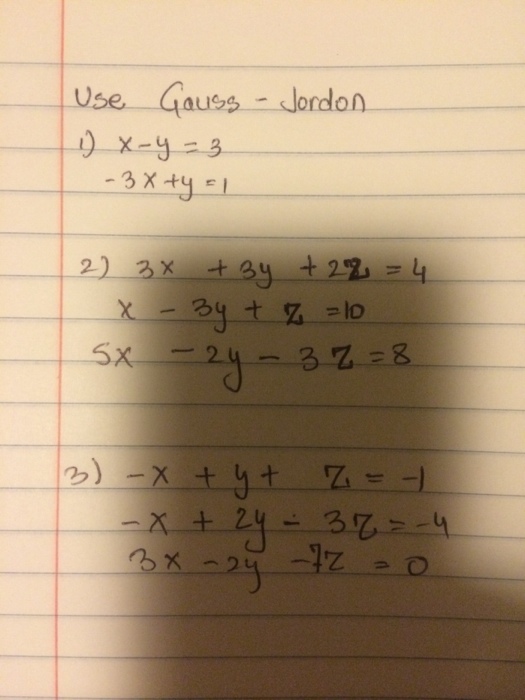 Use Gauss - Jordon
1) x - y = 3
-3x + y = 1
2) 3x + 3y + 2z = 4
x - 3y + z = 10
5x - 2y - 3z = 8
3) -x + y + z = -1
-x + 2y - 3z = -4
3x - 2y - 7z = 0